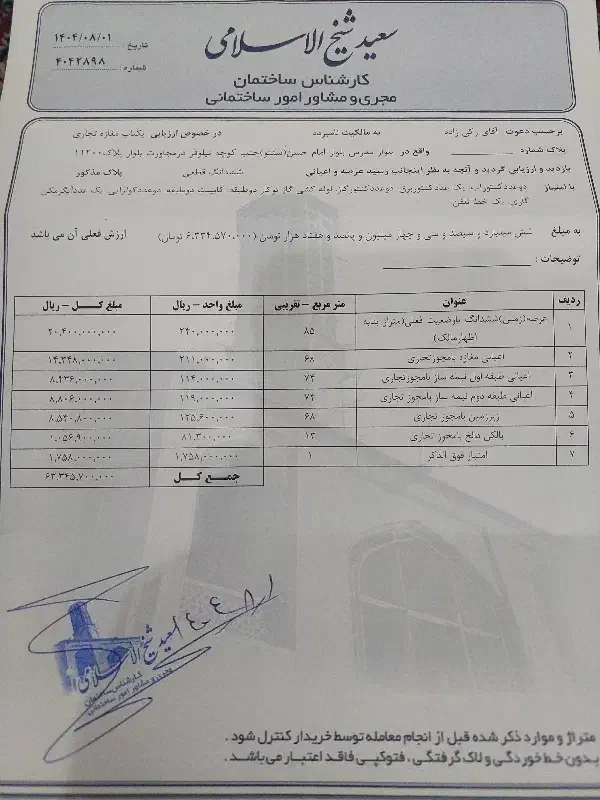 سعید شیخ الاسلامی
کارشناس ساختمان
مجری و مشاور امور ساختمانی
تاریخ ۱۴۰۴/۰۸/۰۱
شماره ۴۰۴۲۸۹۸
برحسب دعوت آقای زکی زاده به مالکیت نامبرده در خصوص ارزیابی یکباب مغازه تجاری
پلاک شماره واقع در بلوار مدرس بلوار امام حسن(سنتو)جنب کوچه نیلوفر درمجاورت بلوار پلاک۱۱۲۰۰
بازدید و ارزیابی گردید و آنچه به نظر اینجانب رسید عرصه و اعیانی ششدانگ قطعی پلاک مذکور
با امتیاز دوعددکنتوراب، یک عددکنتوربرق، دوعددکنتورگاز، لوله کشی گاز توکار دوطبقه، کابینت دوطبقه، دوعددکولرآبی، یک عددآبگرمکن گازی، یک خط تلفن.
به مبلغ شش میلیارد و سیصد و سی و چهار میلیون و پانصد و هفتاد هزار تومان (۶.۳۳۴.۵۷۰.۰۰۰ تومان) ارزش فعلی آن می باشد
توضیحات :
ردیف عنوان متر مربع – تقریبی مبلغ واحد – ریال مبلغ کــل – ریال
۱ عرصه(زمین)ششدانگ باوضعیت فعلی(متراژ بنابه اظهارمالک) ۸۵ ۲۴۰,۰۰۰,۰۰۰ ۲۰.۴۰۰.۰۰۰.۰۰۰
۲ اعیانی مغازه بامجوزتجاری ۶۸ ۲۱۱,۰۰۰,۰۰۰ ۱۴.۳۴۸.۰۰۰.۰۰۰
۳ اعیانی طبقه اول نیمه ساز بامجوزتجاری ۷۴ ۱۱۴,۰۰۰,۰۰۰ ۸.۴۳۶.۰۰۰.۰۰۰
۴ اعیانی طبقه دوم نیمه ساز بامجوز تجاری ۷۴ ۱۱۹,۰۰۰,۰۰۰ ۸.۸۰۶.۰۰۰.۰۰۰
۵ زیرزمین بامجوز تجاری ۶۸ ۱۲۵,۶۰۰,۰۰۰ ۸.۵۴۰.۸۰۰.۰۰۰
۶ بالکن داخل بامجوز تجاری ۱۳ ۸۱.۳۰۰,۰۰۰ ۱.۰۵۶.۹۰۰.۰۰۰
۷ امتیاز فوق الذکر ۱ ۱,۷۵۸,۰۰۰,۰۰۰ ۱.۷۵۸.۰۰۰.۰۰۰
جمــع کــل ۶۳.۳۴۵.۷۰۰.۰۰۰
سعید شیخ الاسلامی
کارشناس ساختمان
مجری و مشاور امور ساختمانی
متراژ و موارد ذکر شده قبل از انجام معامله توسط خریدار کنترل شود .
بدون خط خوردگی و لاک گرفتگی ، فتوکپی فاقد اعتبار می باشد .